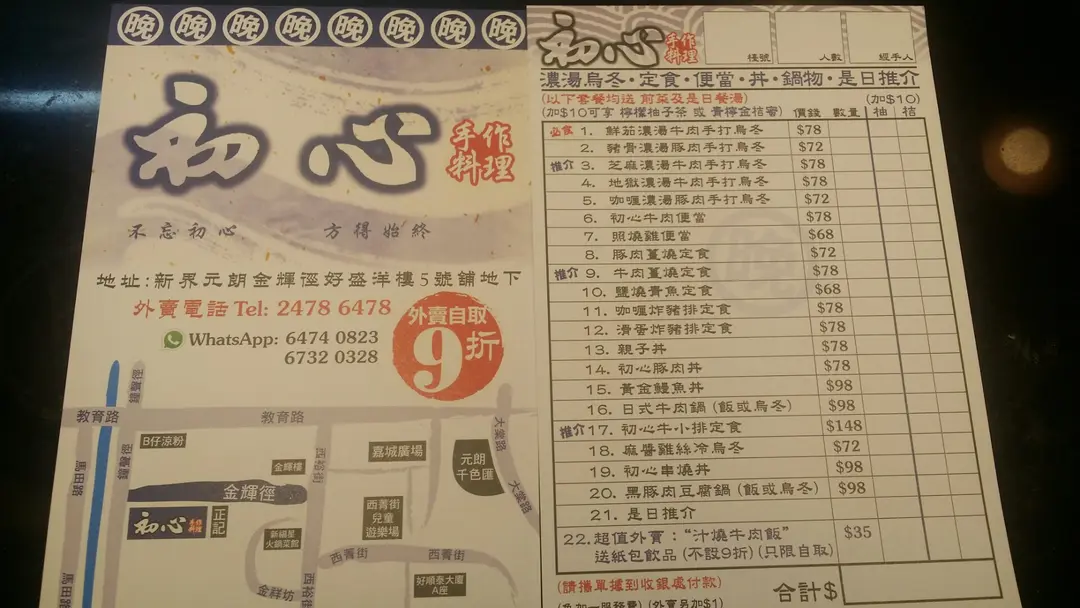 晚 晚 晚 晚 晚 晚 晚 晚
初心 手作料理
不忘初心 方得始終
地址:新界元朗金輝徑好盛洋樓5號舖地下
外賣電話 Tel: 2478 6478
WhatsApp: 6474 0823
6732 0328
外賣自取
9折
教育路 鐘聲徑 教育路 大棠路
B仔涼粉 金輝樓 西裕街 嘉城廣場 元朗千色匯
馬田路 鐘聲徑 金輝徑 大棠路
初心 手作料理 正記 西菁街兒童遊樂場
新福星火鍋菜館
西菁街 西菁街
馬田路 金祥坊 西裕街 好順泰大廈A座
初心 手作料理 檯號 人數 經手人
濃湯烏冬・定食・便當・丼・鍋物・是日推介
(以下套餐均送 前菜及是日餐湯) (加$10)
(加$10可享 檸檬柚子茶 或 青檸金桔蜜) 價錢 數量 柚 桔
必食 1. 鮮茄濃湯牛肉手打烏冬 $78
2. 豬骨濃湯豚肉手打烏冬 $72
推介 3. 芝麻濃湯牛肉手打烏冬 $78
4. 地獄濃湯牛肉手打烏冬 $78
5. 咖喱濃湯豚肉手打烏冬 $72
6. 初心牛肉便當 $78
7. 照燒雞便當 $68
8. 豚肉薑燒定食 $72
推介 9. 牛肉薑燒定食 $78
10. 鹽燒青魚定食 $68
11. 咖喱炸豬排定食 $78
12. 滑蛋炸豬排定食 $78
13. 親子丼 $78
14. 初心豚肉丼 $78
15. 黃金鰻魚丼 $98
16. 日式牛肉鍋 (飯或烏冬) $98
推介 17. 初心牛小排定食 $148
18. 麻醬雞絲冷烏冬 $72
19. 初心串燒丼 $98
20. 黑豚肉豆腐鍋 (飯或烏冬) $98
21. 是日推介
22. 超值外賣：“汁燒牛肉飯” $35
送紙包飲品 (不設9折) (只限自取)
(請攜單據到收銀處付款) 合計$
(免加一服務費) (外賣另加$1)
晚